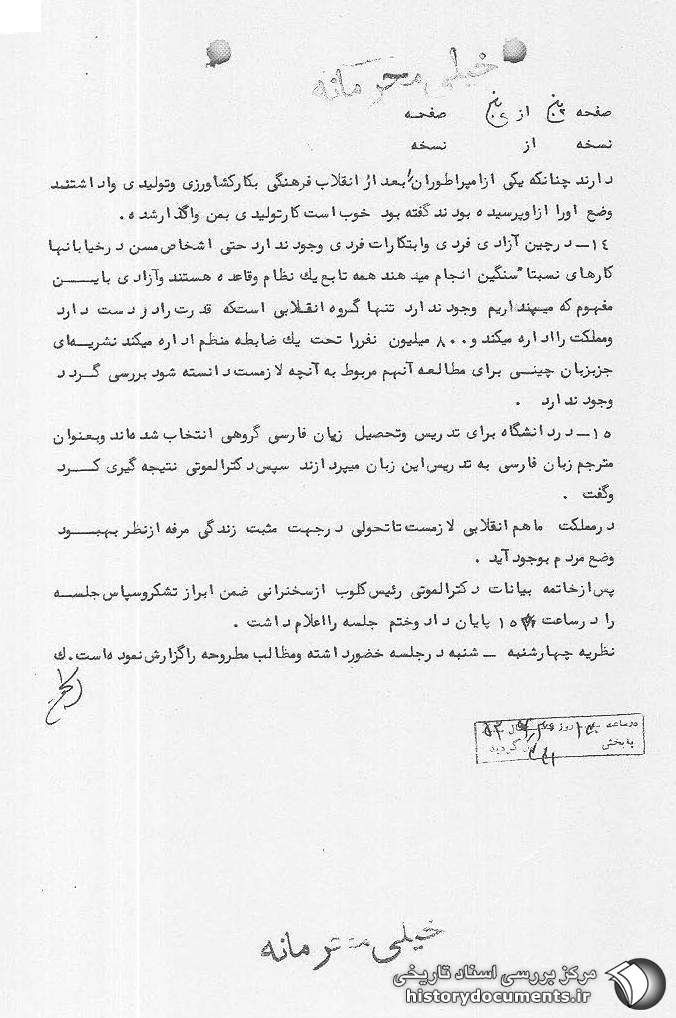 خیلی محرمانه
صفحه پنج از پنج صفحه
نسخه از نسخه
دارند چنانکه یکی از امپراطوران را بعد از انقلاب فرهنگی بکار کشاورزی وتولیدی واداشتند
وضع اورا ازاوپرسیده بودند گفته بود خوب است کارتولیدی بمن واگذارشده .
١٤ــ درچین آزادی فردی وابتکارات فردی وجود ندارد حتی اشخاص مسن درخیابانها
کارهای نسبتا" سنگین انجام میدهند همه تابع یك نظام وقاعده هستند وآزادی بایـــن
مفهوم که میپنداریم وجود ندارد تنها گروه انقلابی استکه قدرت رادردست دارد
ومملکت رااداره میکند و ٨٠٠ میلیون نفررا تحت یك ضابطه منظم اداره میکند نشریه‌ای
جزبزبان چینــی برای مطالعه آنهم مربوط به آنچه لازمست دانسته شود بررسی گــردد
وجود ندارد .
١٥ــ دردانشگاه برای تدریس وتحصیل زبان فارسی گروهی انتخاب شده‌اند وبعنوان
مترجم زبان فارسی به تدریس این زبان میپردازند سپس دکترالموتی نتیجه گیری کــرد
وگفت .
درمملکت ماهم انقلابی لازمست تاتحولی درجهت مثبت زندگی مرفه ازنظر بهبــود
وضع مردم بوجود آید .
پس ازخاتمه بیانات دکترالموتی رئیس کلوب ازسخنرانی ضمن ابراز تشکروسپاس جلســه
را درساعت پایان داد وختم جلسه رااعلام داشت .
نظریه چهارشنبه ــ شنبه درجلسه خضورداشته ومطالب مطروحه راگزارش نموده‌است. ك
درساعه روز سال
به بخش گردید
خیلی محرمانه
مرکز بررسی اسناد تاریخی
historydocuments.ir